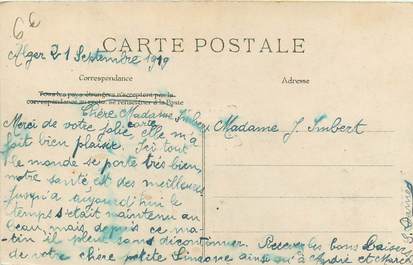 6 €
CARTE POSTALE
Alger le 21 Septembre 1919
Correspondance
Adresse
Tous les pays étrangers n'acceptent pas la
correspondance au recto, se renseigner à la Poste
Chère Madame Imbert
Merci de votre jolie carte, elle m'a
fait bien plaisir. Ici tout
le monde se porte très bien,
notre santé est des meilleures
jusqu'à aujourd'hui le
temps s'était maintenu au
beau, mais depuis ce ma-
tin il pleut sans discontinuer. Recevez les bons baisers
de votre chère petite Simone ainsi qu'à André et March
Madame J. Imbert